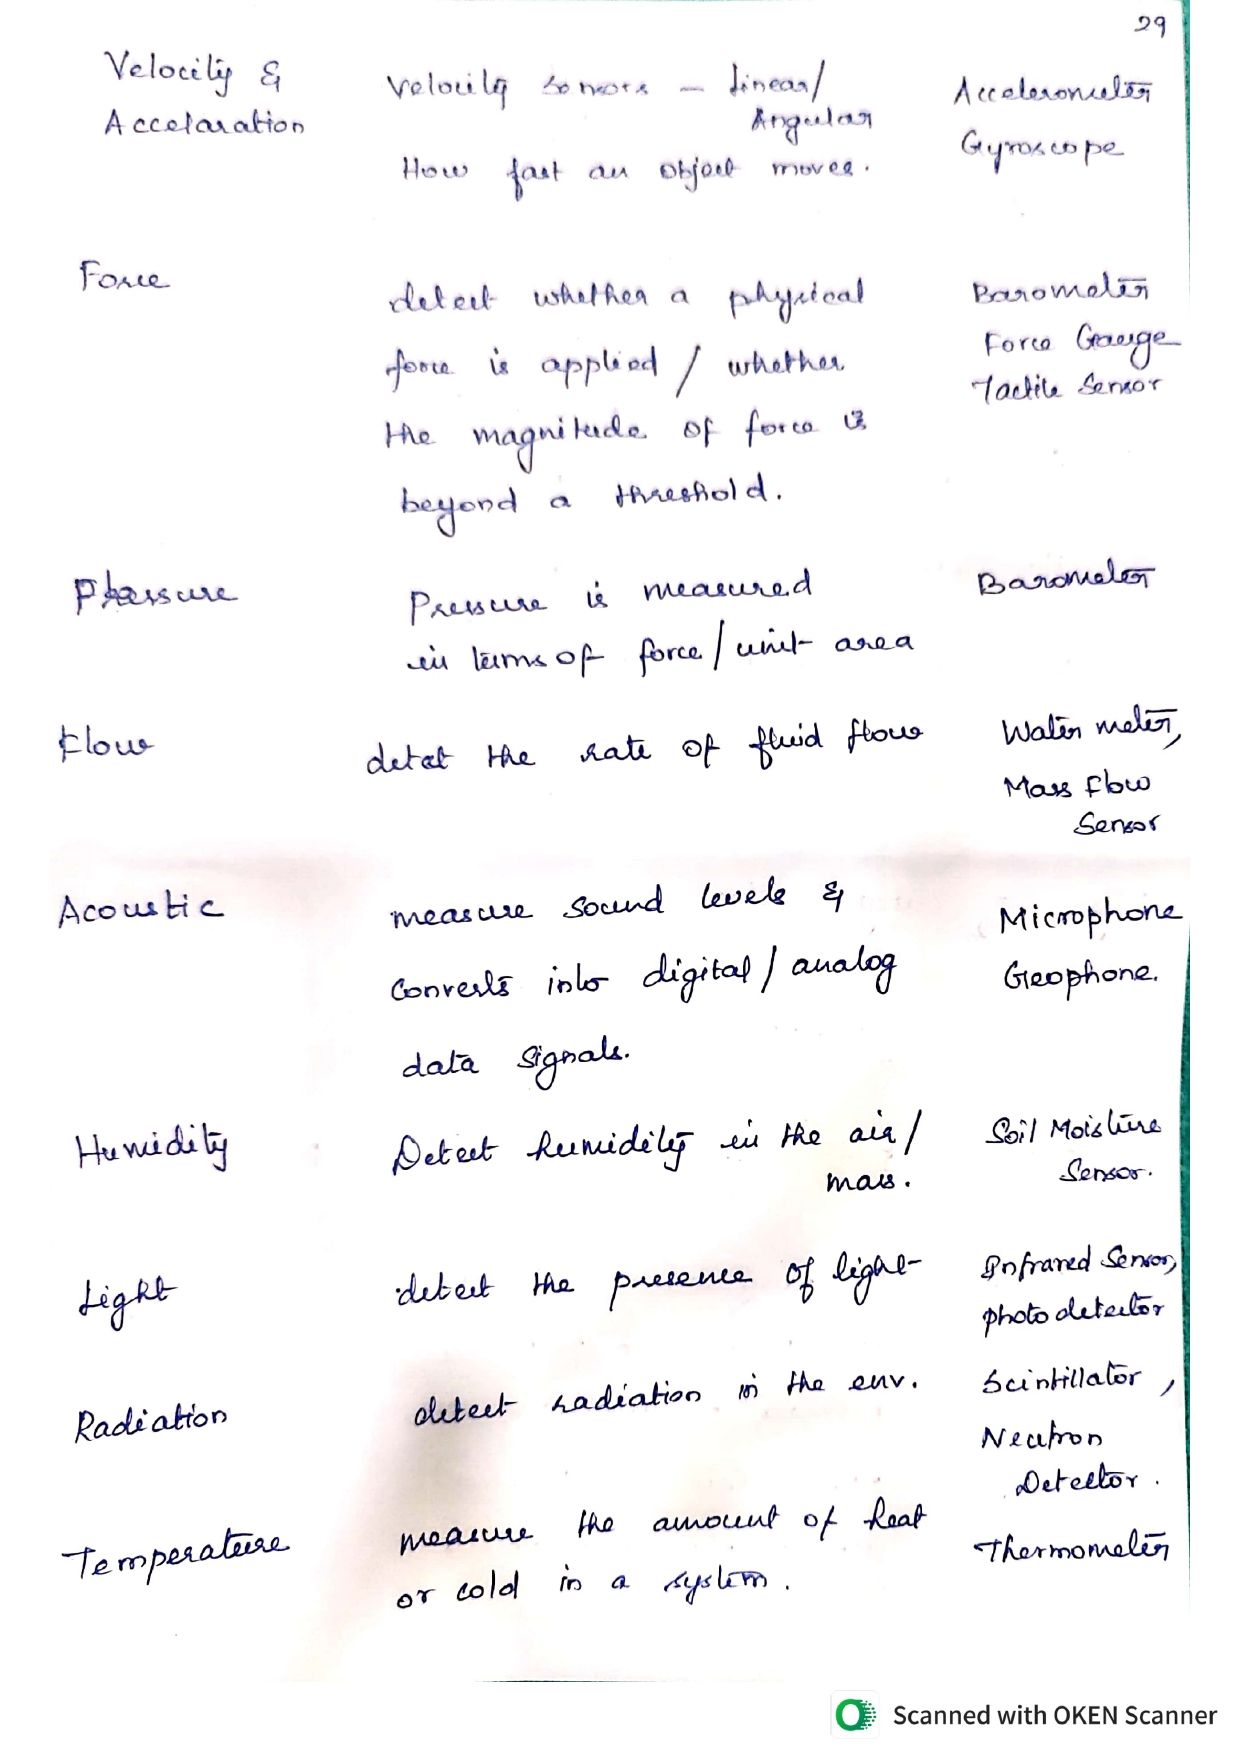 29
Velocity &
Accelaration
Velocity sensors – Linear/
Angular
How fast an object moves.
Accelerometer
Gyroscope
Force
detect whether a physical
force is applied / whether
the magnitude of force is
beyond a threshold.
Barometer
Force Gauge
Tactile Sensor
Pressure
Pressure is measured
in terms of force / unit area
Barometer
Flow
detect the rate of fluid flow
Water meter,
Mass Flow
Sensor
Acoustic
measure sound levels &
Converts into digital / analog
data signals.
Microphone
Geophone.
Humidity
Detect humidity in the air /
mass.
Soil Moisture
Sensor.
Light
detect the presence of light
Infrared Sensor,
photo detector
Radiation
detect radiation in the env.
Scintillator,
Neutron
Detector.
Temperature
measure the amount of heat
or cold in a system.
Thermometer
Scanned with OKEN Scanner